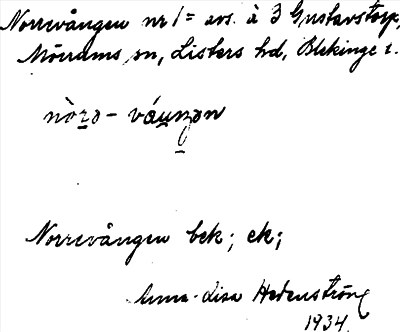 Norrevången nr 1= avs. à 3 Gustavstorp,
Mörrums sn, Listers hd, Blekinge l.
nòrə - váuŋən
Norrevången bek; ek;
Anna-Lisa Hedenström
1934.